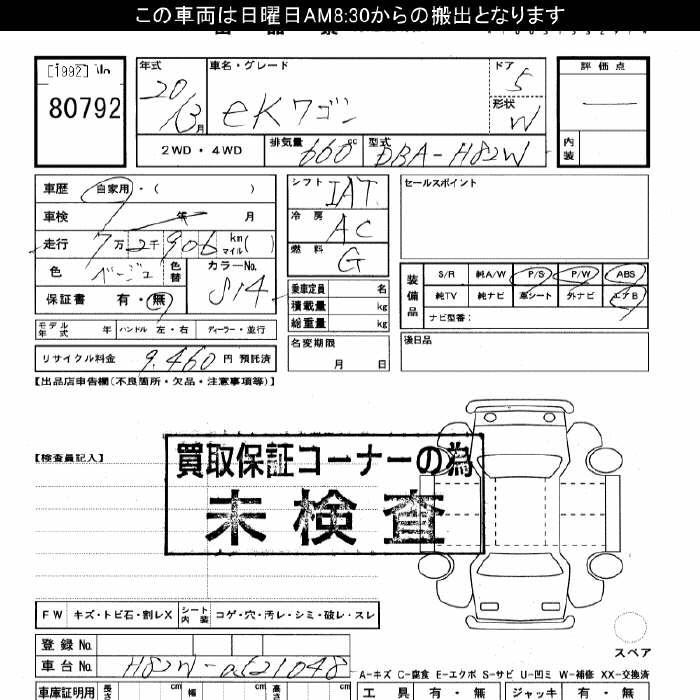 この車両は日曜日AM8:30からの搬出となります
[1992]
80792
年式 車名・グレード ドア 評価点
20/3月 eKワゴン 5
形状 W
2WD・4WD 排気量 660cc 型式 DBA-H82W 内装
車歴 自家用・( )
車検 年 月
走行 7万2千906 km マイル( )
色 ベージュ 色替 カラーNo. S14
保証書 有・無
シフト IAT
冷房 AC
燃料 G
乗車定員 名
積載量 kg
総重量 kg
名変期限 月 日
セールスポイント
装備品 S/R 純A/W P/S P/W ABS
純TV 純ナビ 革シート 外ナビ エアB
ナビ型番:
後日品
モデル年式 年 ハンドル 左・右 ディーラー・並行
リサイクル料金 9,460 円 預託済
【出品店申告欄(不良箇所・欠品・注意事項等)】
【検査員記入】
買取保証コーナーの為
未検査
FW キズ・トビ石・割レX シート内装 コゲ・穴・汚レ・シミ・破レ・スレ
スペア
登録No.
車台No. H82W-
A-キズ C-腐食 E-エクボ S-サビ U-凹ミ W-補修 XX-交換済
車庫証明用 長さ cm 幅 cm 高さ cm 工具 有・無 ジャッキ 有・無